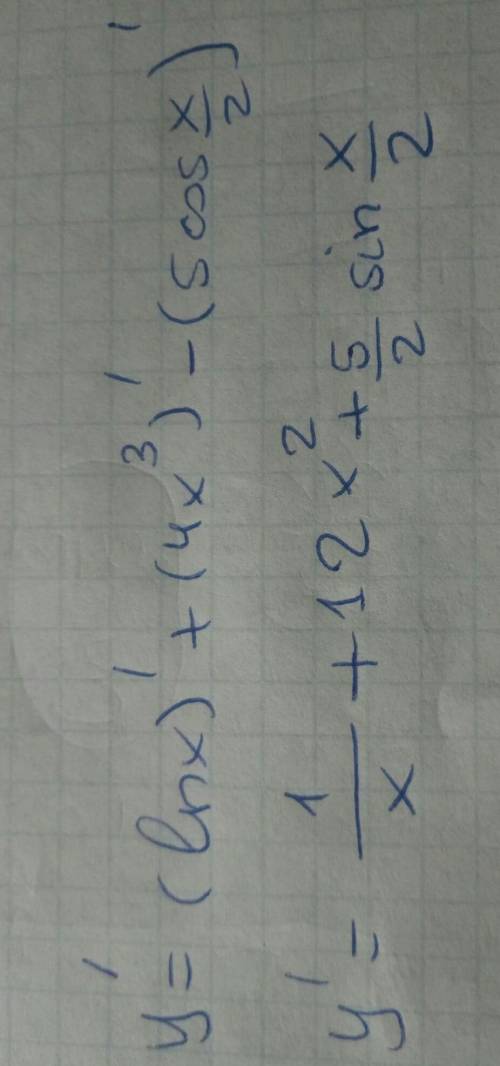 y' = (lnx)' + (4x³)' - (5 cos x/2)'
y' = 1/x + 12x² + 5/2 sin x/2